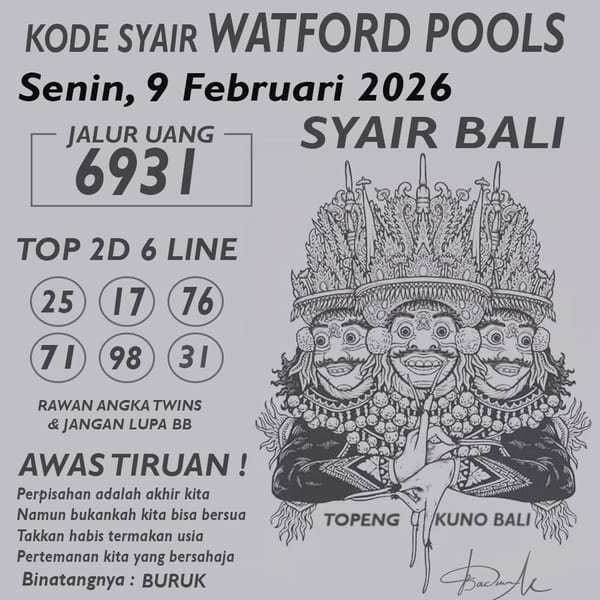 KODE SYAIR WATFORD POOLS
Senin, 9 Februari 2026
SYAIR BALI
JALUR UANG
6931
TOP 2D 6 LINE
25 17 76
71 98 31
RAWAN ANGKA TWINS
& JANGAN LUPA BB
AWAS TIRUAN !
Perpisahan adalah akhir kita
Namun bukankah kita bisa bersua
Takkan habis termakan usia
Pertemanan kita yang bersahaja
Binatangnya : BURUK
TOPENG KUNO BALI